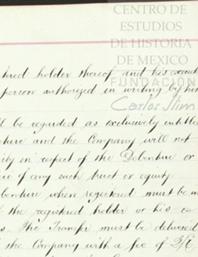 CENTRO DE
ESTUDIOS
DE HISTORIA
DE MEXICO
FUNDACIÓN
Carlos Slim
holder thereof and his
person authorized in writing by
be regarded as exclusively entitled
and the Company will not
in respect of the Debenture or
if any such trust or equity
when registered must be
the registered holder or his
The Transfer must be delivered
the Company with a fee of 2/6